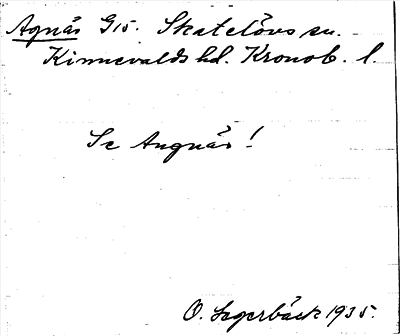 Agnäs G15. Skatelövs sn.
Kinnevalds hd. Kronob. l.
Se Angnäs!
O. Lagerbäck 1935.